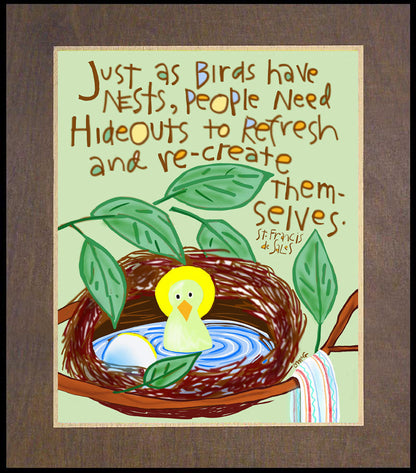 Just as Birds have
Nests, People Need
HideOuts to Refresh
and re-create
them-
selves.
St. Francis
de Sales